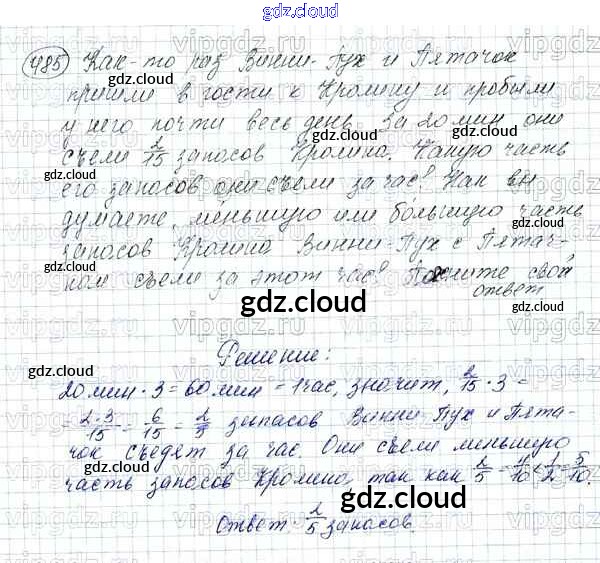 gdz.cloud
485 Как-то раз Винни-Пух и Пятачок
пришли в гости к Кролику и пробыли
у него почти весь день. За 20 мин они
съели 2/15 запасов Кролика. Какую часть
его запасов они съели за час? Как вы
думаете, меньшую или бóльшую часть
запасов Кролика Винни-Пух с Пятач-
ком съели за этот час? Поясните свой
ответ
gdz.cloud
Решение:
20 мин · 3 = 60 мин = 1 час, значит, 2/15 · 3 =
= 2·3/15 = 6/15 = 2/5 запасов Винни Пух и Пята-
чок съедят за час. Они съели меньшую
часть запасов Кролика, так как 2/5 = 4/10 < 1/2 = 5/10.
Ответ: 2/5 запасов.
gdz.cloud